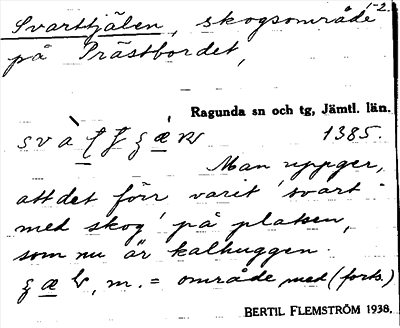 1-2.
Svarttjälen, skogsområde
på Prästbordet,
Ragunda sn och tg, Jämtl. län.
1385.
Man uppger,
att det förr varit 'svart
med skog' på platsen,
som nu är kalhuggen.
m. = område med (forts.)
BERTIL FLEMSTRÖM 1938.